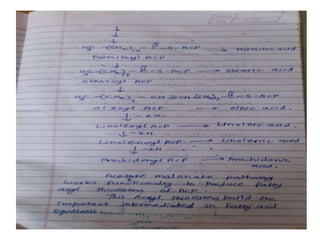 H₃C-(CH₂)₁₄-C-S-ACP → Palmitic acid
Palmitoyl ACP
H₃C-(CH₂)₁₆-C-S-ACP → Stearic acid
Stearoyl ACP
H₃C-(CH₂)₇-CH=CH-(CH₂)₇-C-S-ACP
Oleoyl ACP → oleic acid.
↓-2H
Linoleoyl ACP → Linoleic acid.
↓-2H
Linolenoyl ACP → Linolenic acid
↓-2H
Arachidonyl ACP → Arachidonic acid.
Acetate malonate pathway
works functionally to Produce fatty
acyl thioesters of ACP.
This Acyl thioesters build the
important intermediates in fatty acid
synthesis